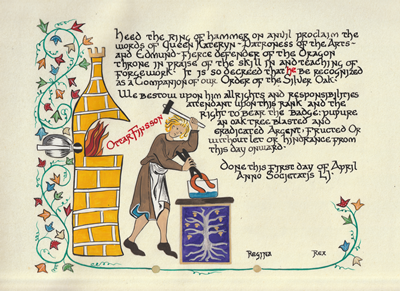 Heed the ring of hammer on anvil proclaim the
words of Queen Kateryn - Patroness of the Arts -
and Edmund - Fierce defender of the Dragon
throne in praise of the skill in and teaching of
forgework. It is so decreed that he be recognized
as a Companion of our Order of the Silver Oak.
We bestow upon him all rights and responsibilities
attendant upon this rank and the
right to bear the badge: purpure
an oak tree blasted and
eradicated Argent, Fructed Or
without let or hindrance from
this day onward.
Ottar
Done this first day of April
Anno Societatis
Regina Rex